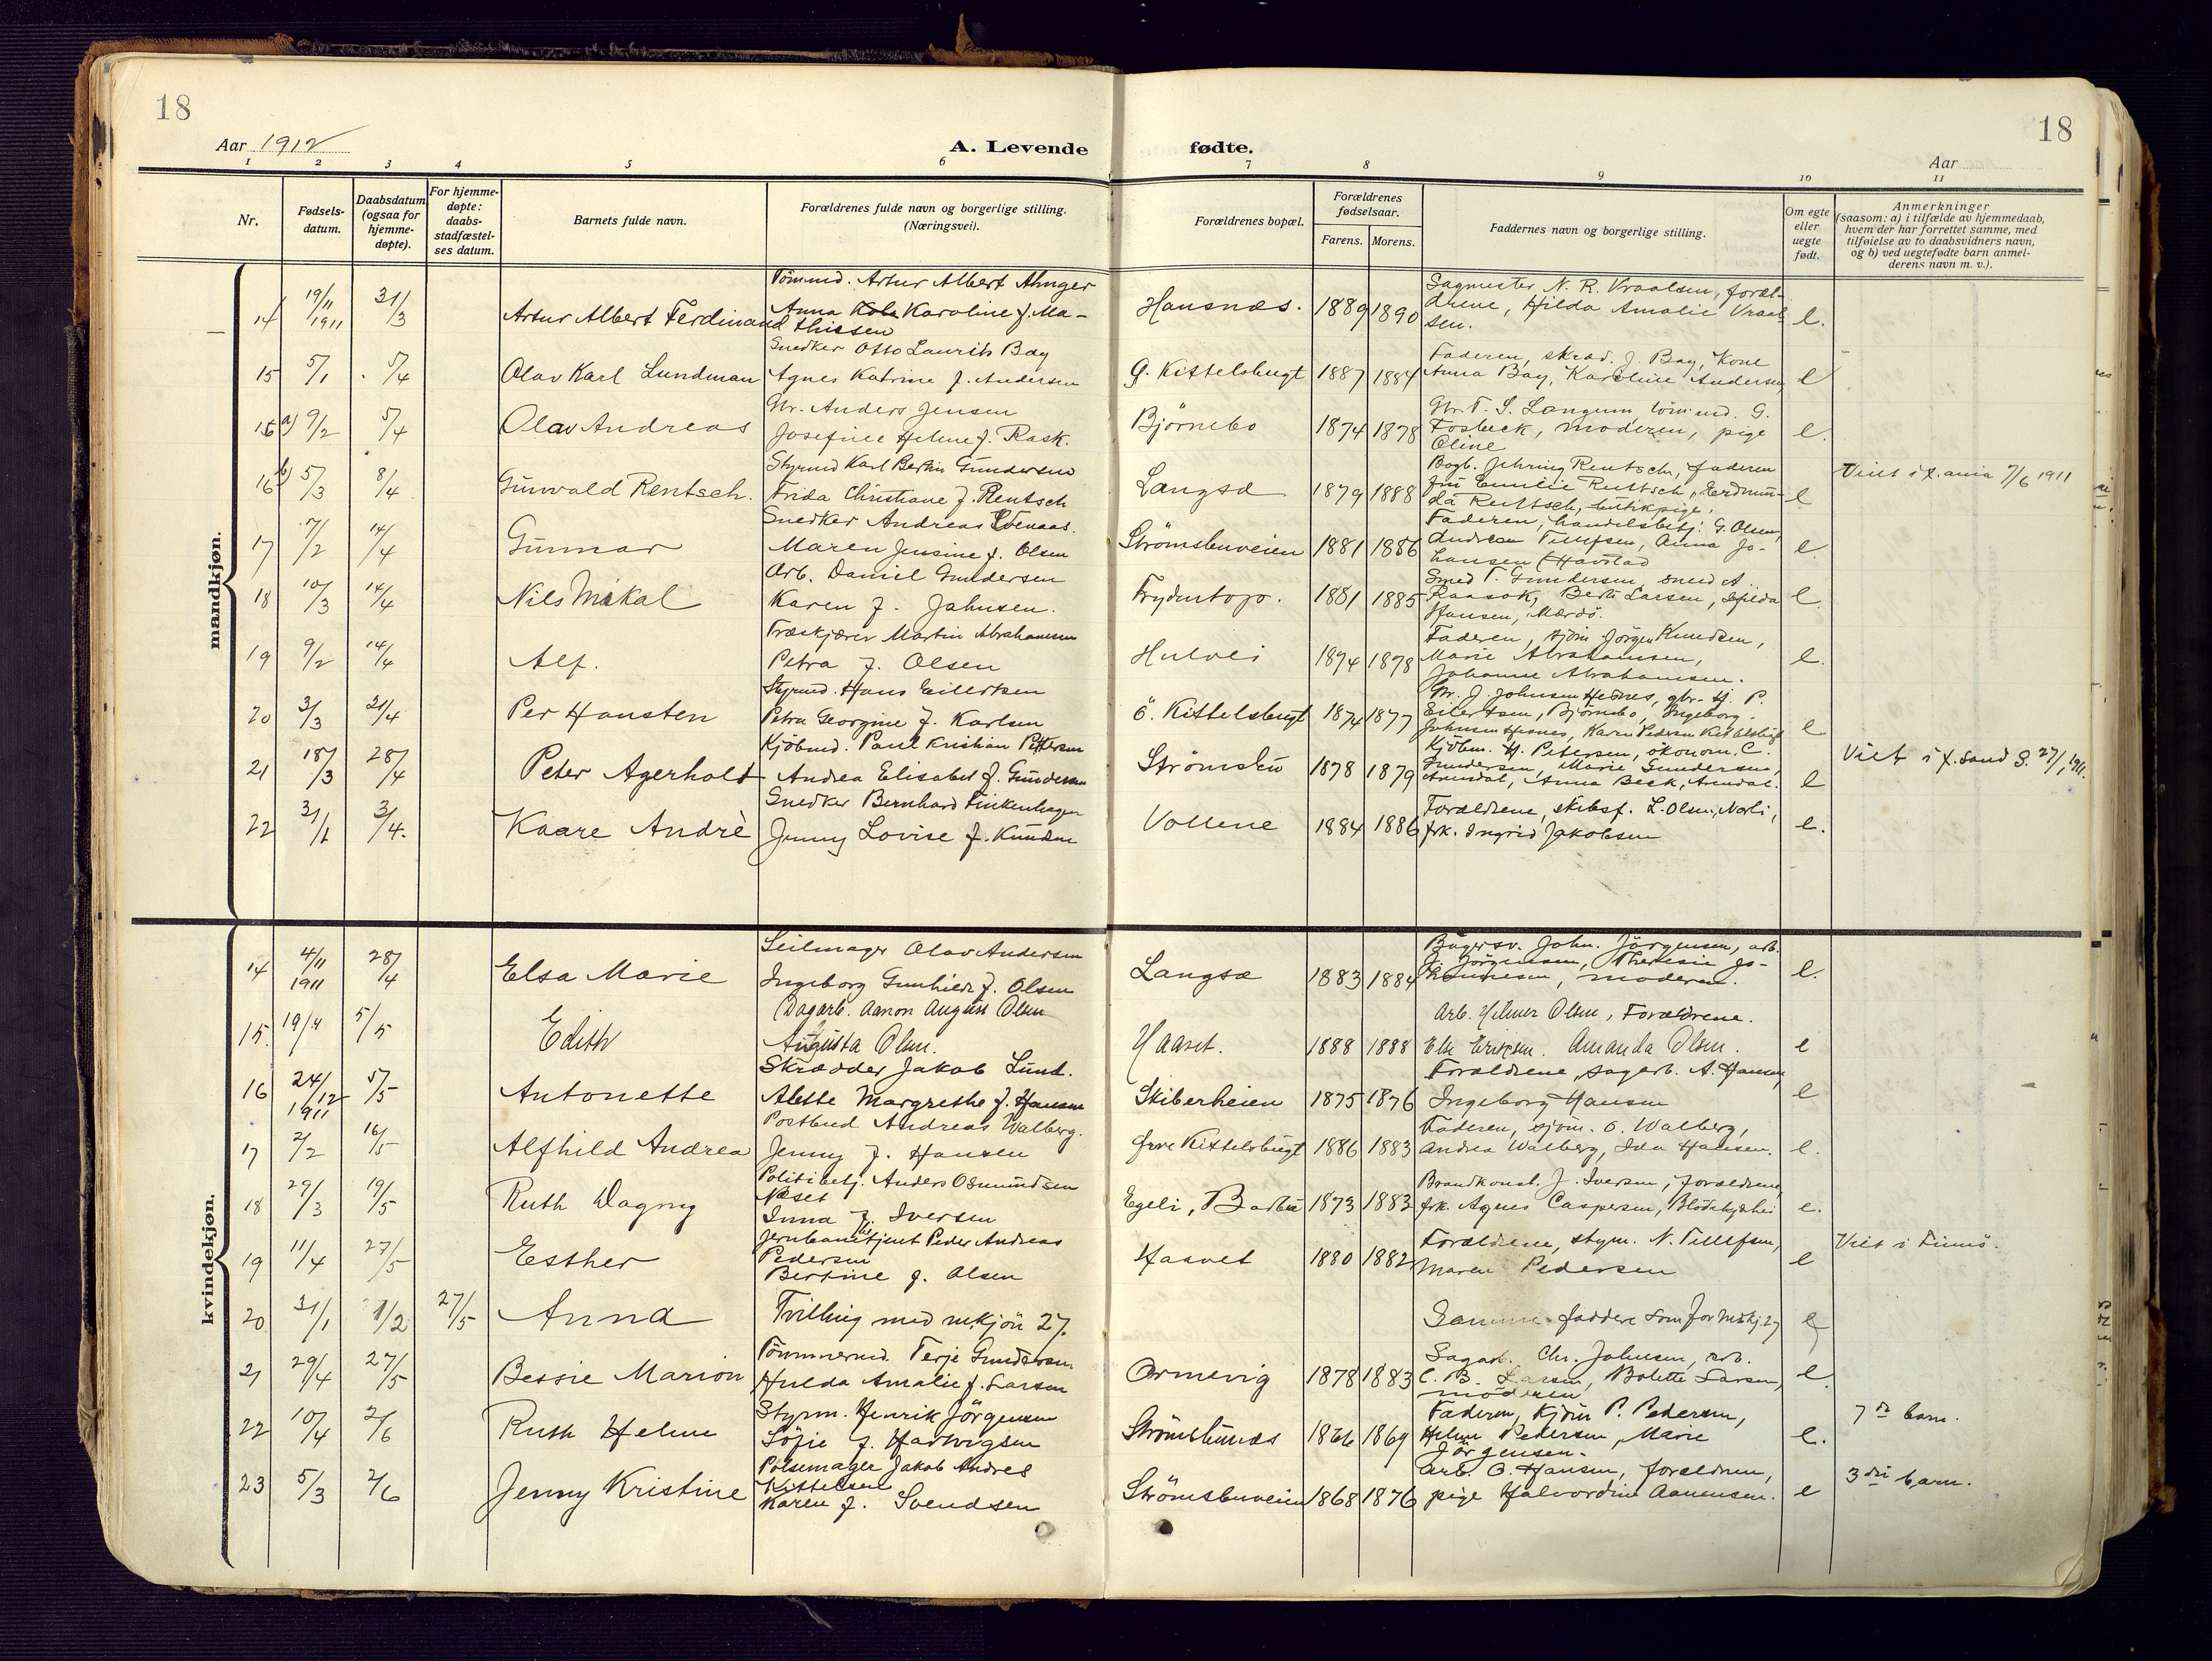 18
18
Aar 1912
A. Levende
fødte.
Aar
1 2 3 4 5 6 7 8 9 10 11
Nr.
Fødsels-
datum.
Daabsdatum
(ogsaa for
hjemme-
døpte).
For hjemme-
døpte:
daabs-
stadfæstel-
ses datum.
Barnets fulde navn.
Forældrenes fulde navn og borgerlige stilling.
(Næringsvei).
Forældrenes bopæl.
Forældrenes
fødselsaar.
Farens. Morens.
Faddernes navn og borgerlige stilling.
Om egte
eller
uegte
født.
Anmerkninger
(saasom: a) i tilfælde av hjemmedaab,
hvem der har forrettet samme, med
tilføielse av to daabsvidners navn,
og b) ved uegtefødte barn anmel-
derens navn m. v.).
mandkjøn.
14 19/11 1911 31/3 Artur Albert Ferdinand
Tömmd. Artur Albert Alunger
Anna Karoline f. Ma-
thisen
Hansnæs. 1889 1890
Sagmester N. R. Vraalsen, foræl-
drene, Hilda Amalie Vraal-
sen.
e.
15 5/1 5/4 Olav Karl Lundman
Snedker Otto Laurits Bay
Agnes Katrine f. Andersen
Ø. Kittelsbugt 1887 1884
Faderen, skræd. J. Bay, Kone
Anna Bay, Karoline Andersen,
e
16 a) 9/2 5/4 Olav Andreas
Gbr. Anders Jensen
Josefine Helene f. Rask.
Björnebo 1874 1878
Gbr. T. S. Langum, tömmd. G.
Fosbeck, moderen, pige
Oline
e.
16 b) 5/3 8/4 Gunvald Rentsch.
Styrmd Karl Bertin Gundersen
Frida Christiane f. Rentsch
Langsæ 1879 1888
Bogb. Jehring Rentsch, faderen
fru Emilie Rentsch, Erdmun-
da Rentsch, butikpige.
e
Viet i X.ania 7/6 1911
17 7/2 14/4 Gunnar
Snedker Andreas
Maren Jensine f. Olsen
Strömsbuveien 1881 1886
Faderen, handelsbetj. G. Olsen,
Andreas Tellefsen, Anna Jo-
hansen Havstad
e.
18 10/3 14/4 Nils Mikal
Arb. Daniel Gundersen
Karen f. Jahnsen.
Frydentopp. 1881 1885
Smed T. Gundersen, smed A.
Raasok, Berte Larsen, Hilda
Hansen, Mærdö.
e.
19 9/2 14/4 Alf.
Træskjærer Martin Abrahamsen
Petra f. Olsen
Hulvei 1874 1878
Faderen, sjöm Jörgen Knudsen,
Marie Abrahamsen,
Johanne Abrahamsen.
e.
20 3/3 21/4 Per Hansten
Styrmd. Hans Eilertsen
Petra Georgine f. Karlsen
Ö. Kittelsbugt 1874 1877
Gbr. J. Johnsen Hesnes, gbr. Hj. P.
Eilertsen, Björnebo, Ingeborg
Johnsen Hesnes, Karen Pedersen Kittelsbugt
e
21 18/3 28/4 Peter Agerholt
Kjöbmd. Paul Kristian Pettersen
Andrea Elisabet f. Gundersen
Strömsbu 1878 1879
Kjöbm. H. Petersen, ökonom. C.
Gundersen, Marie Gundersen,
Arendal, Anna Beck, Arendal.
e
Viet i X.sand S. 27/1 1911.
22 31/1 3/4. Kaare Andrè
Snedker Bernhard Finkenhagen
Jenny Lovise f. Knudsen
Vollene 1884 1886
Forældrene, skibsf. L. Olsen, Norli,
frk. Ingrid Jakobsen
e.
kvindekjøn.
14 4/11 1911 28/4 Elsa Marie
Seilmager Olav Andersen
Ingeborg Gunhilde f. Olsen
Langsæ 1883 1884
Bögersv. John. Jörgensen, arb.
J. Jörgensen, Theresie Jo-
hannesen, moderen.
e.
15. 19/4 5/5 Edith
Dagarb. Aanon August Olsen
Augusta Olsen.
Haaset. 1888 1888
Arb. Hilmer Olsen, Forældrene.
Else Eriksen. Amanda Olsen.
e
16 24/12 1911 5/5 Antonette
Skrædder Jakob Lund.
Alette Margrethe f. Hansen
Skiberheien 1875 1876
Forældrene, sagarb. A. Hansen,
Ingeborg Hansen
e
17 2/2 16/5 Alfhild Andrea
Postbud Andreas Walberg.
Jenny f. Hansen
Øvre Kittelsbugt 1886 1883
Faderen, sjöm. O. Walberg,
Andrea Walberg, Ida Hansen.
e.
18 29/3 19/5 Ruth Dagny
Politibetj. Anders Osmundsen
Næset
Inna f. Iversen
Egeli, Barbu 1873 1883
Brandkonst. J. Iversen, forældrene,
frk. Agnes Caspersen, Blödekjærhei
e.
19 11/4 27/5 Esther
Jernbanebetjent Peder Andreas
Pedersen
Bertine f. Olsen
Haavet 1880 1882
Forældrene, styrm. N. Tellefsen,
Maren Pedersen
e
Viet i Finnö.
20 31/1 1/2 27/5 Anna
Tvilling med mkjön 27.
Samme faddere som for mkj. 27
e
21 29/4 27/5 Bessie Marion
Tömmermd. Terje Gundersen
Hulda Amalie f. Larsen
Ormevig 1878 1883
Sagarb. Chr. Johnsen, arb.
C. B. Larsen, Bolette Larsen,
moderen
e
22 10/4 2/6 Ruth Helene
Styrm. Henrik Jörgensen
Söfie f. Hartvigsen
Strömsbunæs 1866 1869
Faderen, Kjöm P. Pedersen,
Helene Pedersen, Marie
Jörgensen.
e.
7de barn.
23 5/3 2/6 Jenny Kristine
Pölsemager Jakob Andres
Kittelsen
Karen f. Svendsen
Strömsbuveien 1868 1876
Arb. O. Hansen, forældrene,
pige Halvordine Aanensen.
e
3die barn.